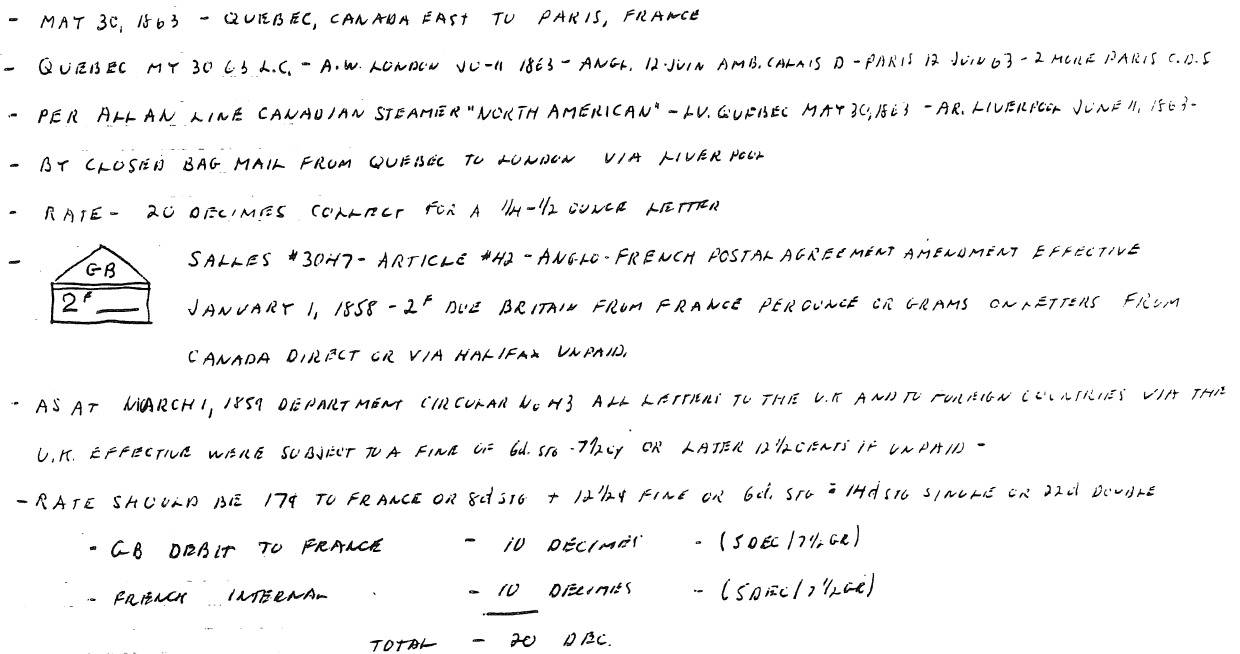 - MAY 30, 1863 - QUEBEC, CANADA EAST TO PARIS, FRANCE
- QUEBEC MY 30 63 L.C. - A.W. LONDON JU-11 1863 - ANGL. 12 JUIN AMB. CALAIS D - PARIS 12 JUIN 63 - 2 MORE PARIS C.D.S
- PER ALLAN LINE CANADIAN STEAMER "NORTH AMERICAN" - LV. QUEBEC MAY 30, 1863 - AR. LIVERPOOL JUNE 11, 1863-
- BY CLOSED BAG MAIL FROM QUEBEC TO LONDON VIA LIVERPOOL
- RATE - 20 DECIMES COLLECT FOR A 1/4-1/2 OUNCE LETTER
- GB 2F SALLES #3047 - ARTICLE #42 - ANGLO-FRENCH POSTAL AGREEMENT AMENDMENT EFFECTIVE
JANUARY 1, 1858 - 2F DUE BRITAIN FROM FRANCE PER OUNCE OR GRAMS ON LETTERS FROM
CANADA DIRECT OR VIA HALIFAX UNPAID.
- AS AT MARCH 1, 1859 DEPARTMENT CIRCULAR No 43 ALL LETTERS TO THE U.K AND TO FOREIGN COUNTRIES VIA THE
U.K. EFFECTIVE WERE SUBJECT TO A FINE OF 6d. STG - 7 1/2 cy OR LATER 12 1/2 CENTS IF UNPAID -
- RATE SHOULD BE 17¢ TO FRANCE OR 8d STG + 12 1/2¢ FINE OR 6d. STG = 14d STG SINGLE OR 22d DOUBLE
- GB DEBIT TO FRANCE - 10 DECIMES - (5 DEC / 7 1/2 GR)
- FRENCH INTERNAL - 10 DECIMES - (5 DEC / 7 1/2 GR)
TOTAL - 20 DEC.